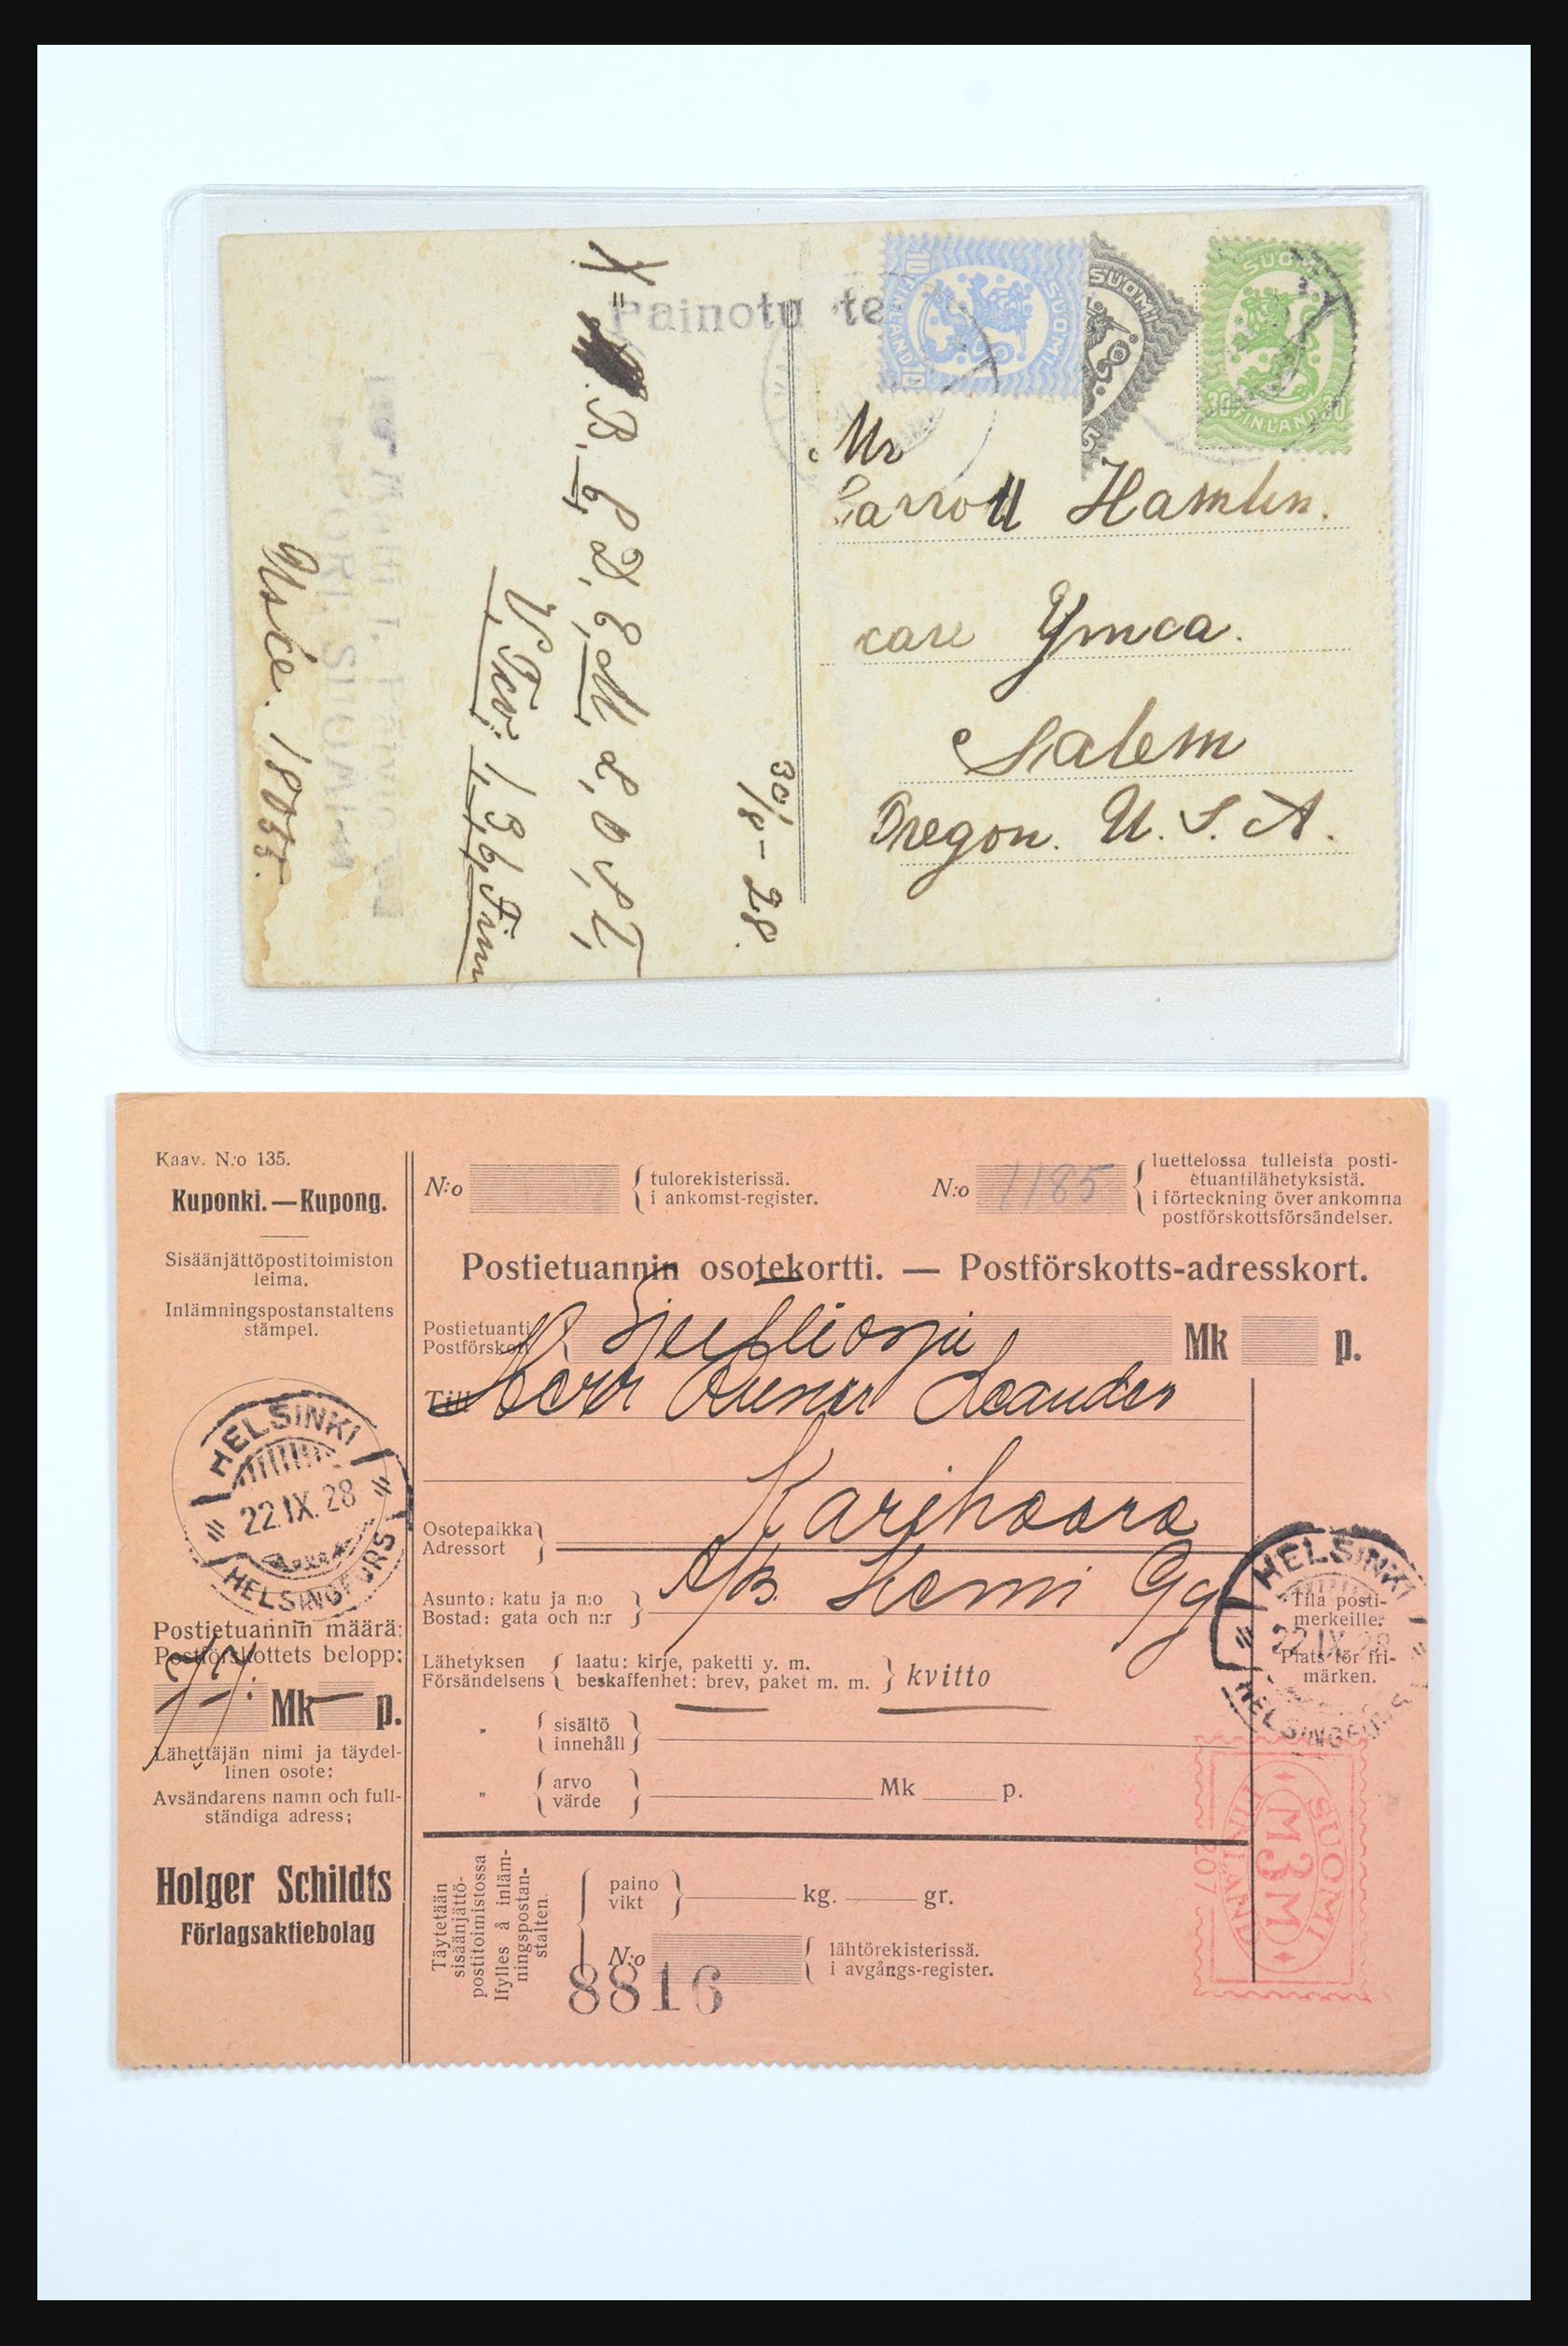 SUOMI
FINLAND
10
10
SUOMI
5
SUOMI
30 FINLAND 30
Painotu te
Mr
Carroll Hamlin.
care Ymca.
Salem
Oregon. U. S. A.
30/8-28.
PORI. SUOMI
Kaav. N:o 135.
Kuponki.—Kupong.
Sisäänjättöpostitoimiston
leima.
Inlämningspostanstaltens
stämpel.
HELSINKI
22.IX.28
HELSINGFORS
Postietuannin määrä:
Postförskottets belopp:
Mk p.
Lähettäjän nimi ja täydel-
linen osote:
Avsändarens namn och full-
ständiga adress;
Holger Schildts
Förlagsaktiebolag
N:o
tulorekisterissä.
i ankomst-register.
N:o 1185
luettelossa tulleista posti-
etuantilähetyksistä.
i förteckning över ankomna
postförskottsförsändelser.
Postietuannin osotekortti. — Postförskotts-adresskort.
Postietuanti
Postförskott
Mk p.
Till
Herr Gunnar Leander
Karihaara
Osotepaikka
Adressort
A/B. Kemi
Asunto: katu ja n:o
Bostad: gata och n:r
Lähetyksen
Försändelsens
laatu: kirje, paketti y. m.
beskaffenhet: brev, paket m. m.
kvitto
" sisältö
innehåll
" arvo
värde
Mk p.
HELSINKI
22.IX.28
HELSINGFORS
Tila posti-
merkeille.
Plats för fri-
märken.
SUOMI
M3M
FINLAND
207
Täytetään
sisäänjättö-
postitoimistossa
Ifylles å inläm-
ningspostan-
stalten.
paino
vikt
kg. gr.
N:o
8816
lähtörekisterissä.
i avgångs-register.